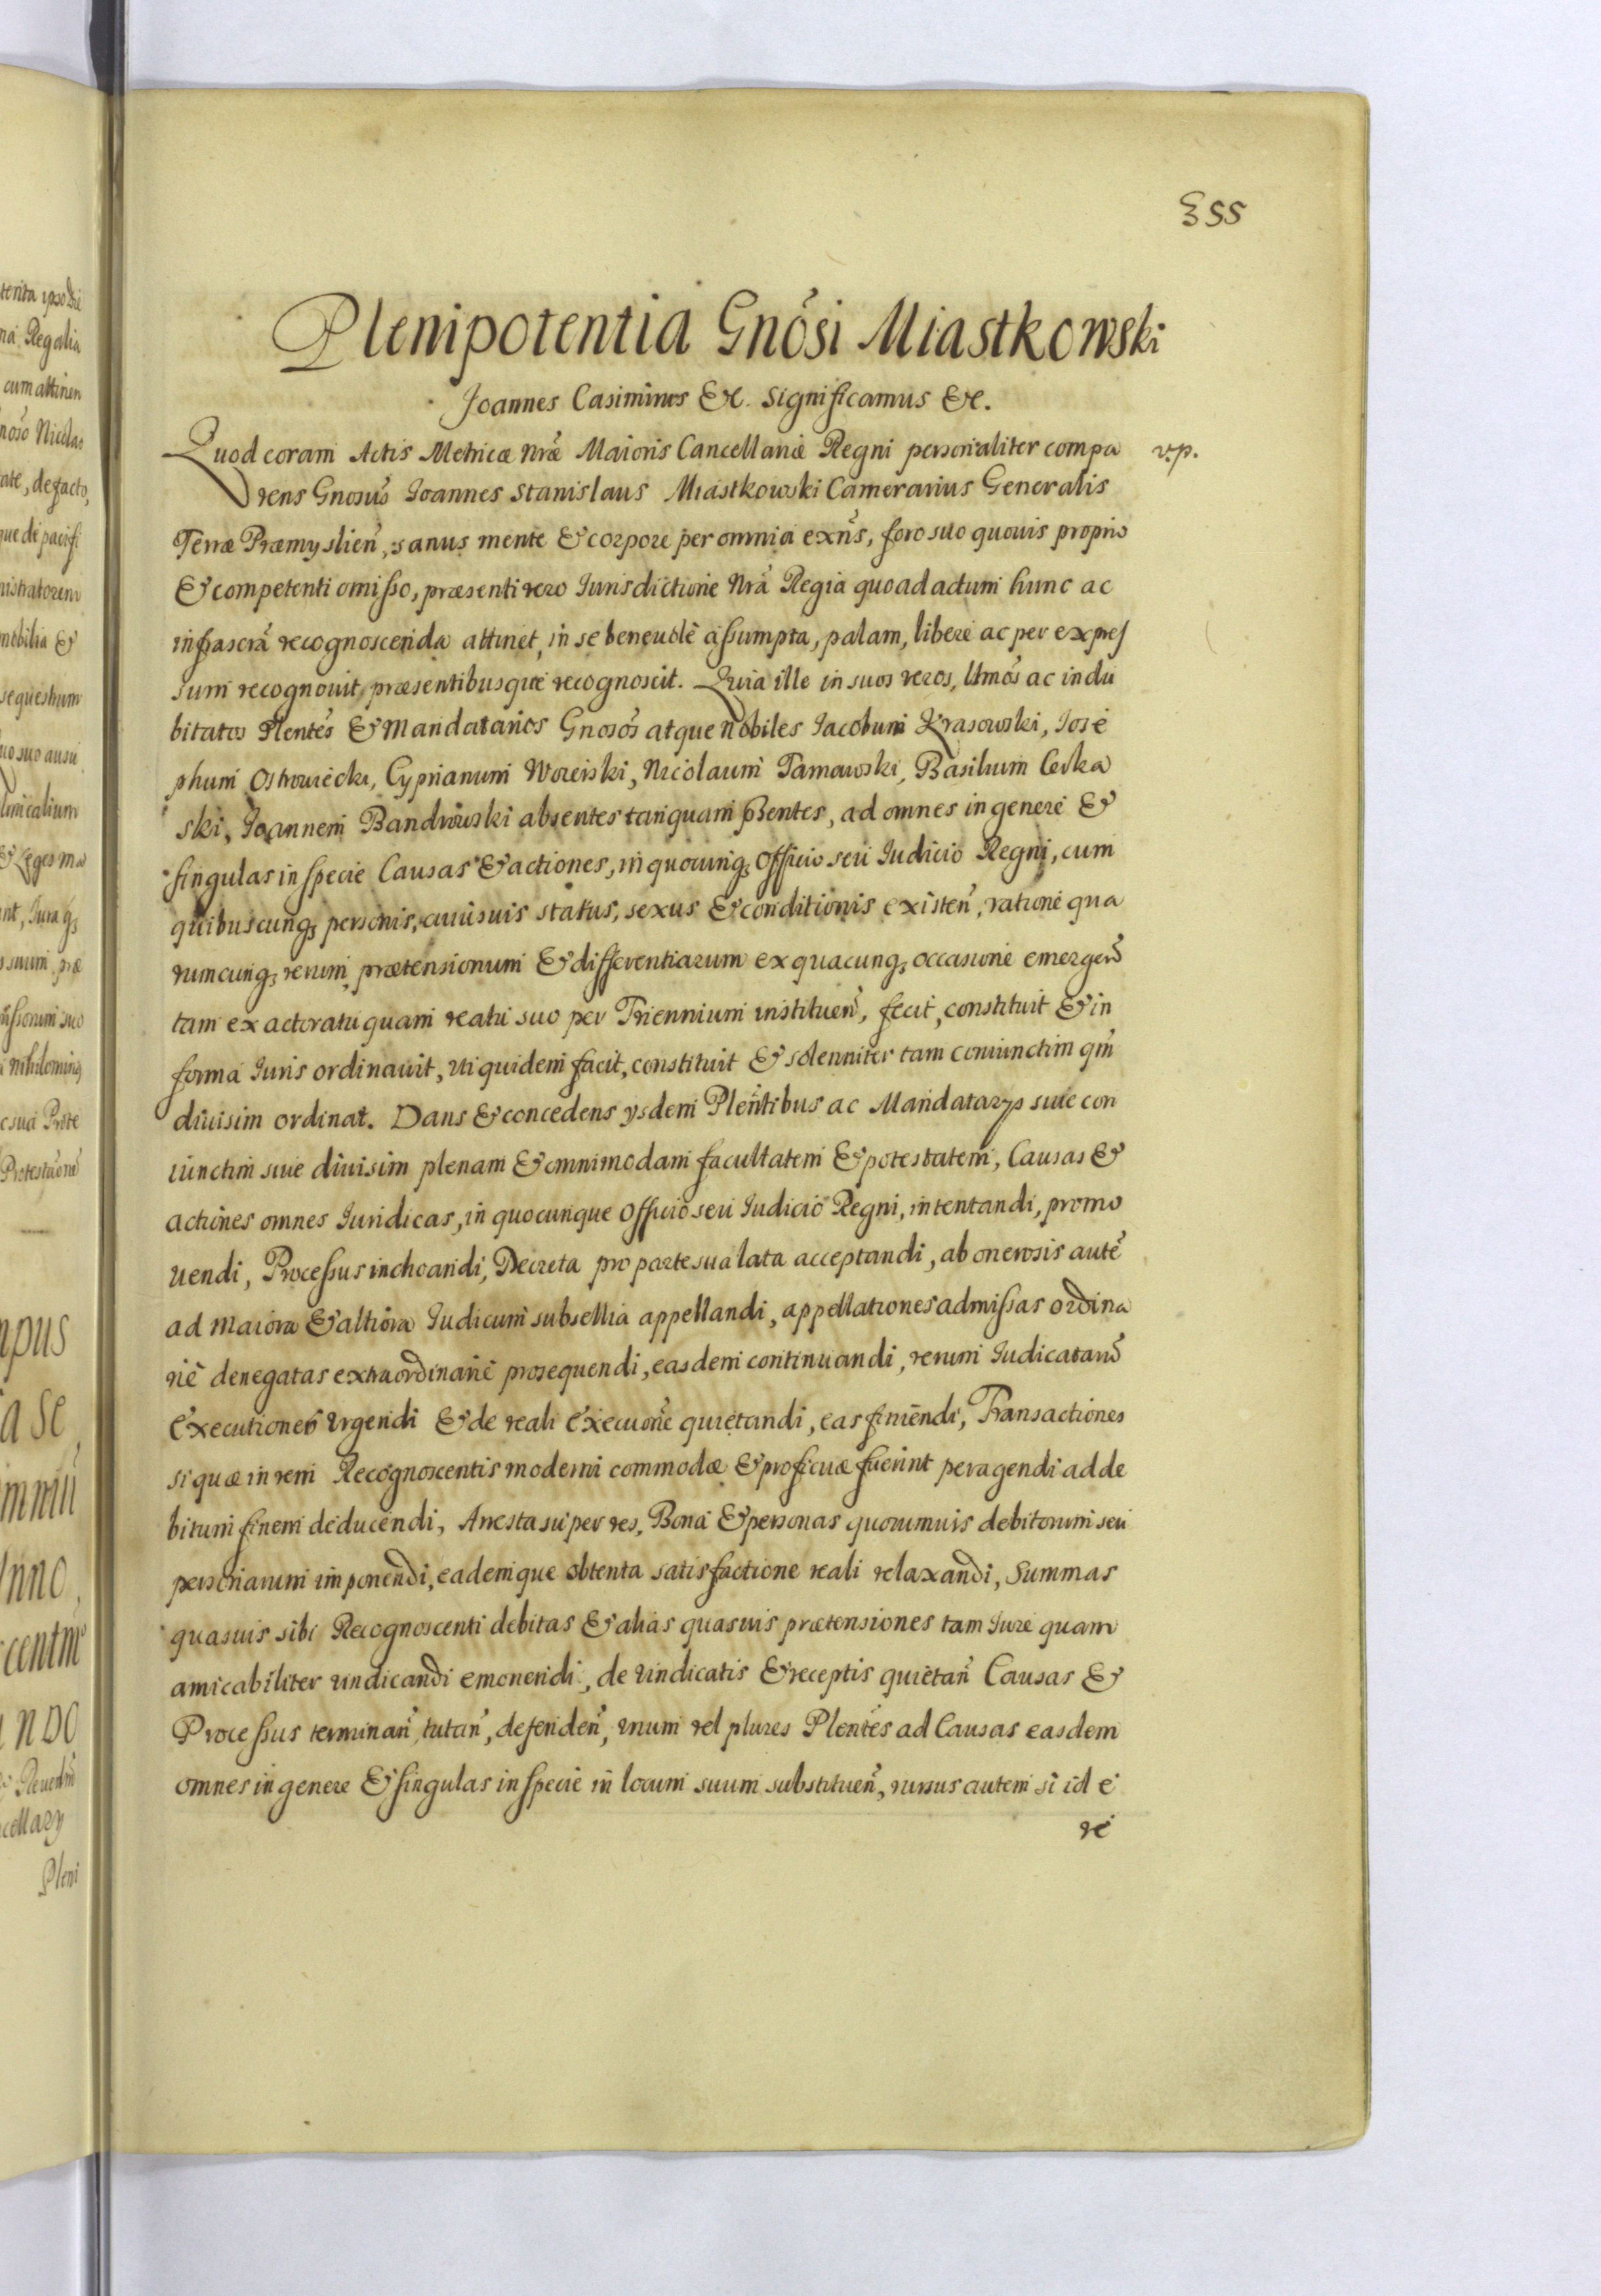 355
Plenipotentia Gnõsi Miastkowski
Joannes Casimirus &c. Significamus &c.
Quod coram Actis Metricæ Nræ Maioris Cancellariæ Regni personaliter compa v.p.
rens Gnosus Joannes Stanislaus Miastkowski Camerarius Generalis
Terræ Præmyslien, sanus mente & corpore per omnia exns, foro suo quouis proprio
& competenti omisso, præsenti vero Iurisdictione Nrã Regia quoad actum hunc ac
infrascrã recognoscenda attinet, in se beneuole assumpta, palam, libere ac per expres
sum recognouit præsentibusque recognoscit. Quia ille in suos veros, ltmõs ac indu
bitatos Plentes & Mandatarios Gnosõs atque Nobiles Iacobum Krasowski, Iose
phum Ostrowiecki, Cyprianum Woreiski, Nicolaum Tarnowski, Basilium
ski, Joannem Bandrowski absentes tanquam pñtes, ad omnes in genere &
singulas in specie Causas & actiones, in quocunq, Officio seu Iudicio Regni, cum
quibuscunq, personis, cuiusuis status, sexus & conditionis existen, ratione qua
rumcunq, rerum prætensionum & differentiarum ex quacunq, occasione emergen
tam ex actoratu quam reatu suo per Triennium instituen, fecit, constituit & in
forma Iuris ordinauit, uti quidem facit, constituit & solenniter tam coniunctim qm
diuisim ordinat. Dans & concedens ysdem Plentibus ac Mandatarys siue con
iunctim siue diuisim plenam & omnimodam facultatem & potestatem, Causas &
actiones omnes Iuridicas, in quocunque Officio seu Iudicio Regni, intentandi, promo
uendi, Processus inchoandi, Decreta pro parte sua lata acceptandi, ab onerosis autẽ
ad maiora & altiora Iudicum subsellia appellandi, appellationes admissas ordina
rie denegatas extraordinarie prosequendi, easdem continuandi, rerum Iudicatarũ
executiones urgendi & de reali execuone quietandi, eas finiendi, Transactiones
si quæ in rem Recognoscentis moderni commodæ & proficuæ fuerint peragendi ad de
bitum finem deducendi, Aresta super res, Bona & personas quorumuis debitorum seu
personarum imponendi, eademque obtenta satisfactione reali relaxandi, Summas
quasuis sibi Recognoscenti debitas & alias quasuis prætensiones tam Iure quam
amicabiliter vindicandi emonendi, de vindicatis & receptis quietan Causas &
Processus terminan, tutan, defenden, unum vel plures Plentes ad Causas easdem
omnes in genere & singulas in specie in locum suum substituen, rursus autem si id e
re